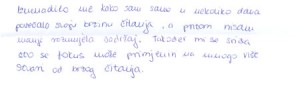 iznenadilo me kako sam samo u nekoliko dana
povećala svoju brzinu čitanja, a pritom nisam
manje razumjela sadržaj. Također mi se sviđa
što se fokus može primijeniti na mnogo više
stvari od brzog čitanja.